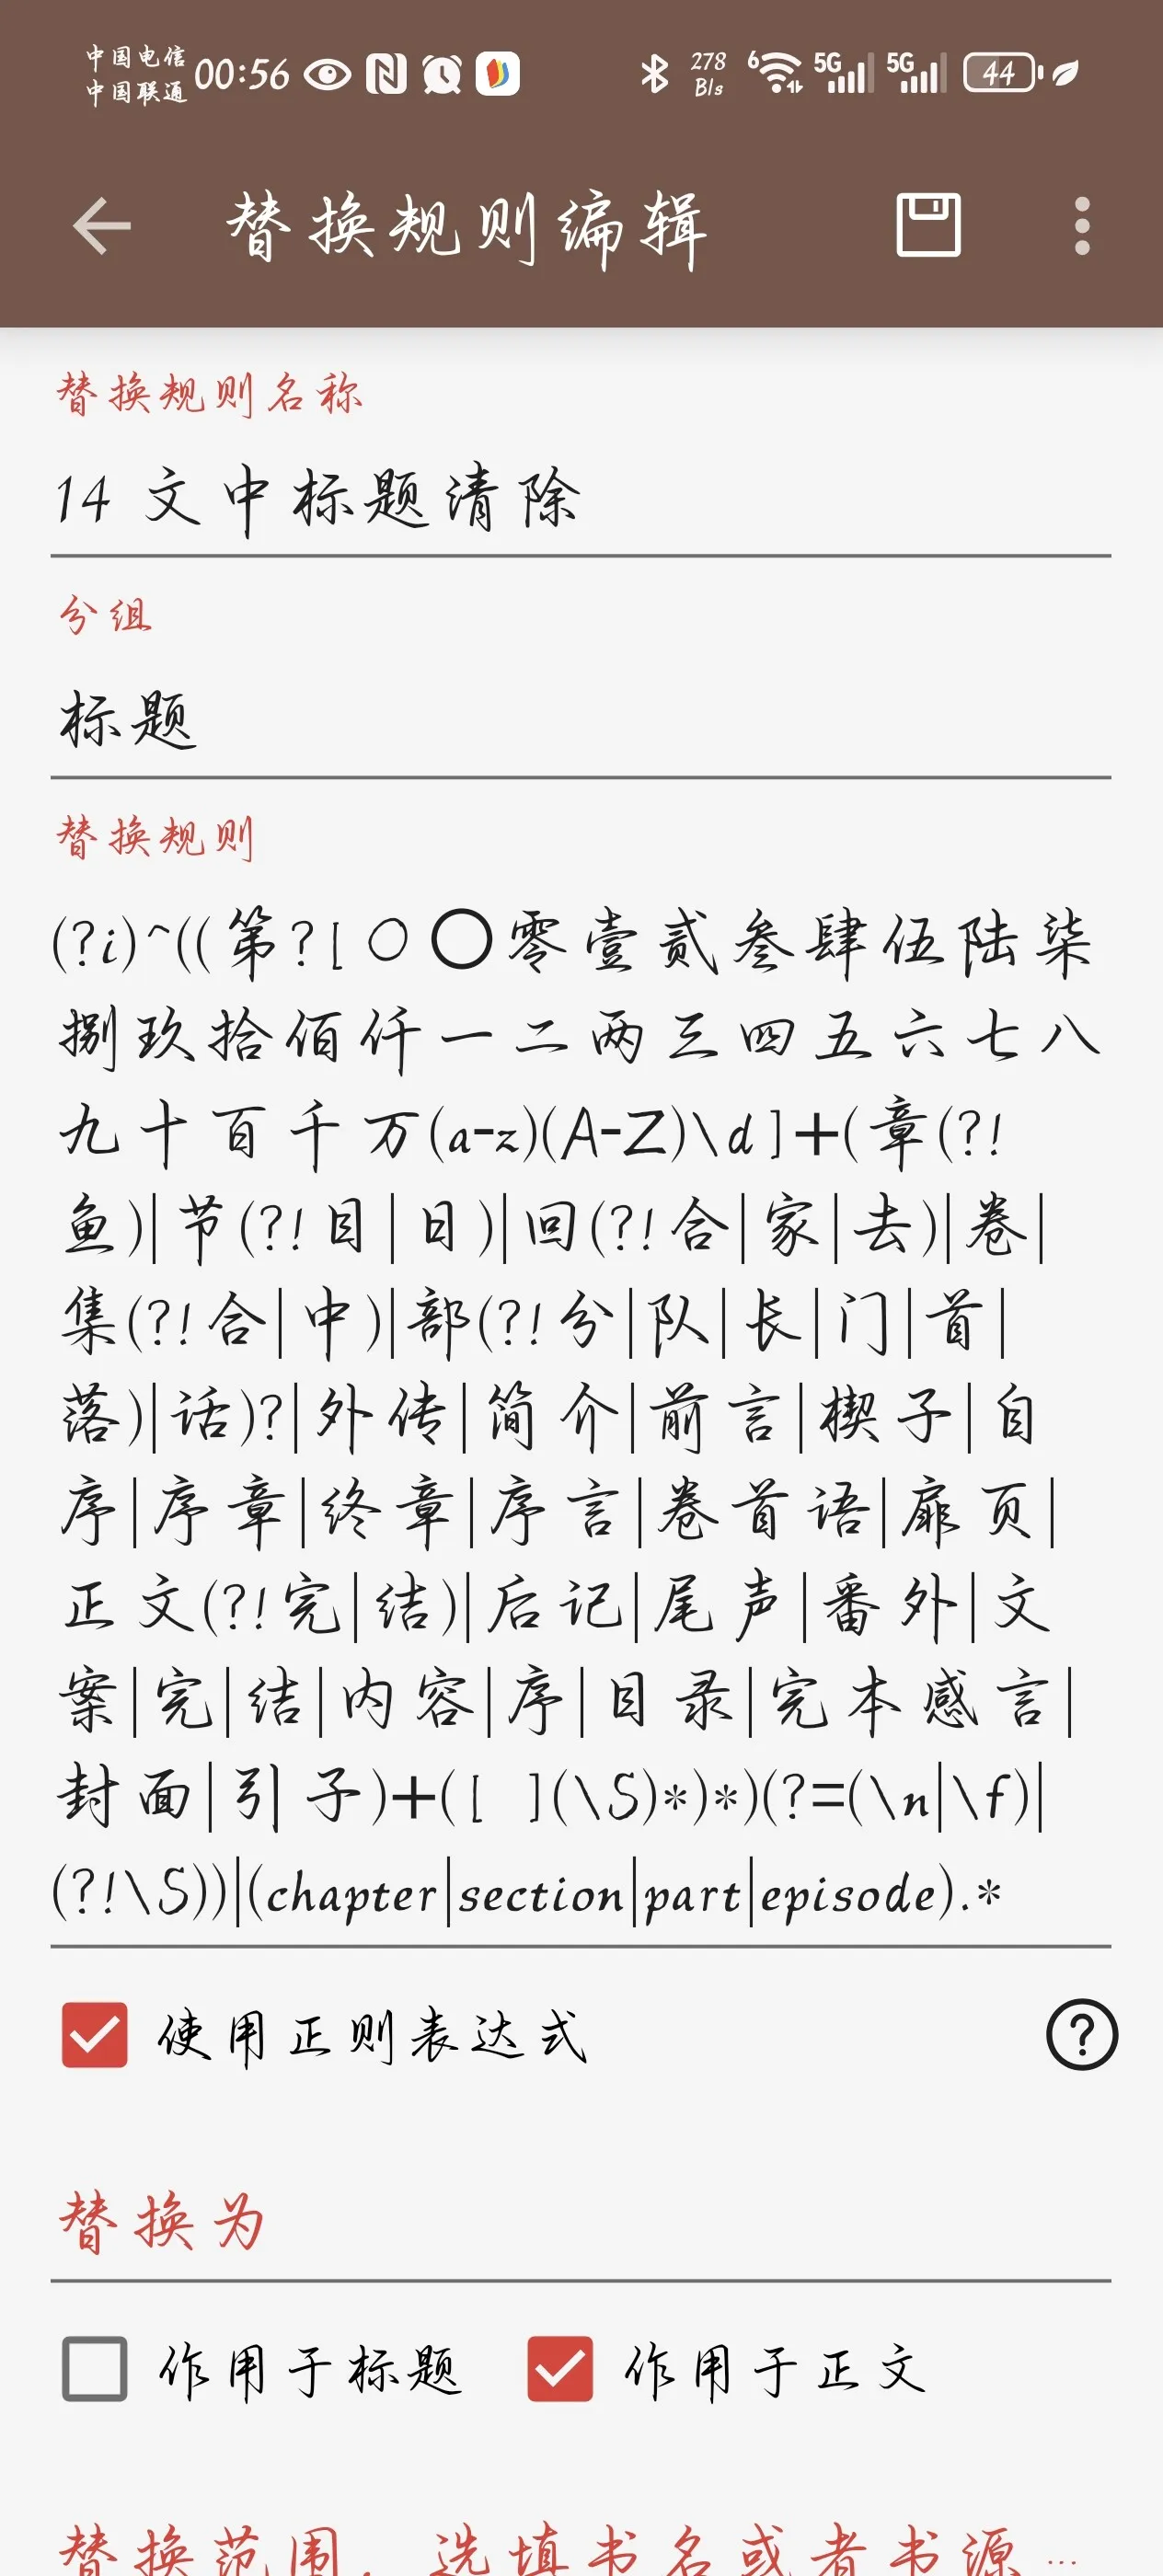 中国电信
中国联通
00:56
278
B/s
6
5G
5G
44
替换规则编辑
替换规则名称
14 文中标题清除
分组
标题
替换规则
(?i)^((第?[〇○零壹贰叁肆伍陆柒
捌玖拾佰仟一二两三四五六七八
九十百千万(a-z)(A-Z)\d]+(章(?!
鱼)|节(?!目|日)|回(?!合|家|去)|卷|
集(?!合|中)|部(?!分|队|长|门|首|
落)|话)?|外传|简介|前言|楔子|自
序|序章|终章|序言|卷首语|扉页|
正文(?!完|结)|后记|尾声|番外|文
案|完|结|内容|序|目录|完本感言|
封面|引子)+([  ](\S)*)*)(?=(\n|\f)|
(?!\S))|(chapter|section|part|episode).*
使用正则表达式
?
替换为
作用于标题
作用于正文
替换范围，选填书名或者书源…